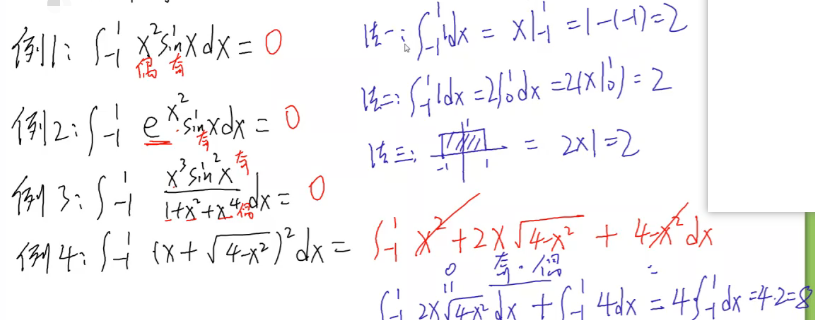 例1: ∫₋₁¹ x² sin x dx = 0
偶 奇
例2: ∫₋₁¹ e^(x²)·sin x dx = 0
奇
例3: ∫₋₁¹ (x³ sin² x)/(1+x²+x⁴) dx = 0
奇
偶
例4: ∫₋₁¹ (x + √(4-x²))² dx = ∫₋₁¹ x² + 2x√(4-x²) + 4-x² dx
0 奇·偶
∫₋₁¹ 2x√(4-x²) dx + ∫₋₁¹ 4dx = 4∫₋₁¹ dx = 4·2 = 8
法一: ∫₋₁¹ 1dx = x|₋₁¹ = 1-(-1) = 2
法二: ∫₋₁¹ 1dx = 2∫₀¹ dx = 2(x|₀¹) = 2
法三: -1 1 = 2×1 = 2